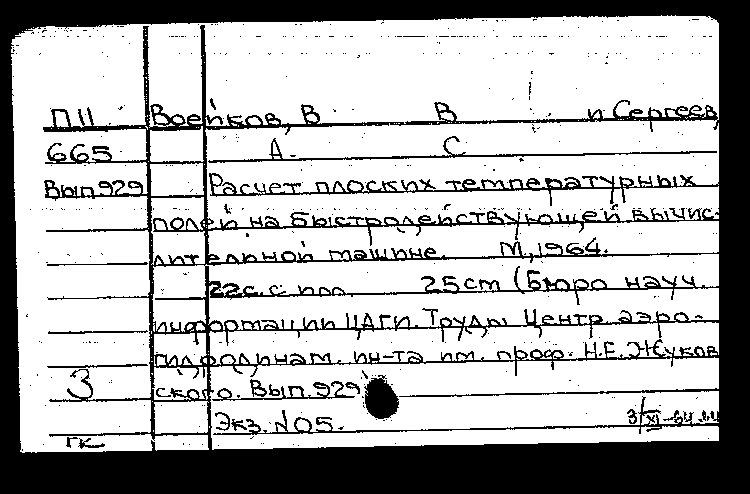 П11 Воейков, В В и Сергеев,
665 А. С
Вып.929 Расчет плоских температурных
полей на быстродействующей вычис-
лительной машине. М, 1964.
22с. с илл. 25 cm (Бюро науч.
информации ЦАГИ. Труды Центр. аэро-
гидродинам. ин-та им. проф. Н.Е. Жуков
3 ского. Вып. 929
Экз. №05.
ГК